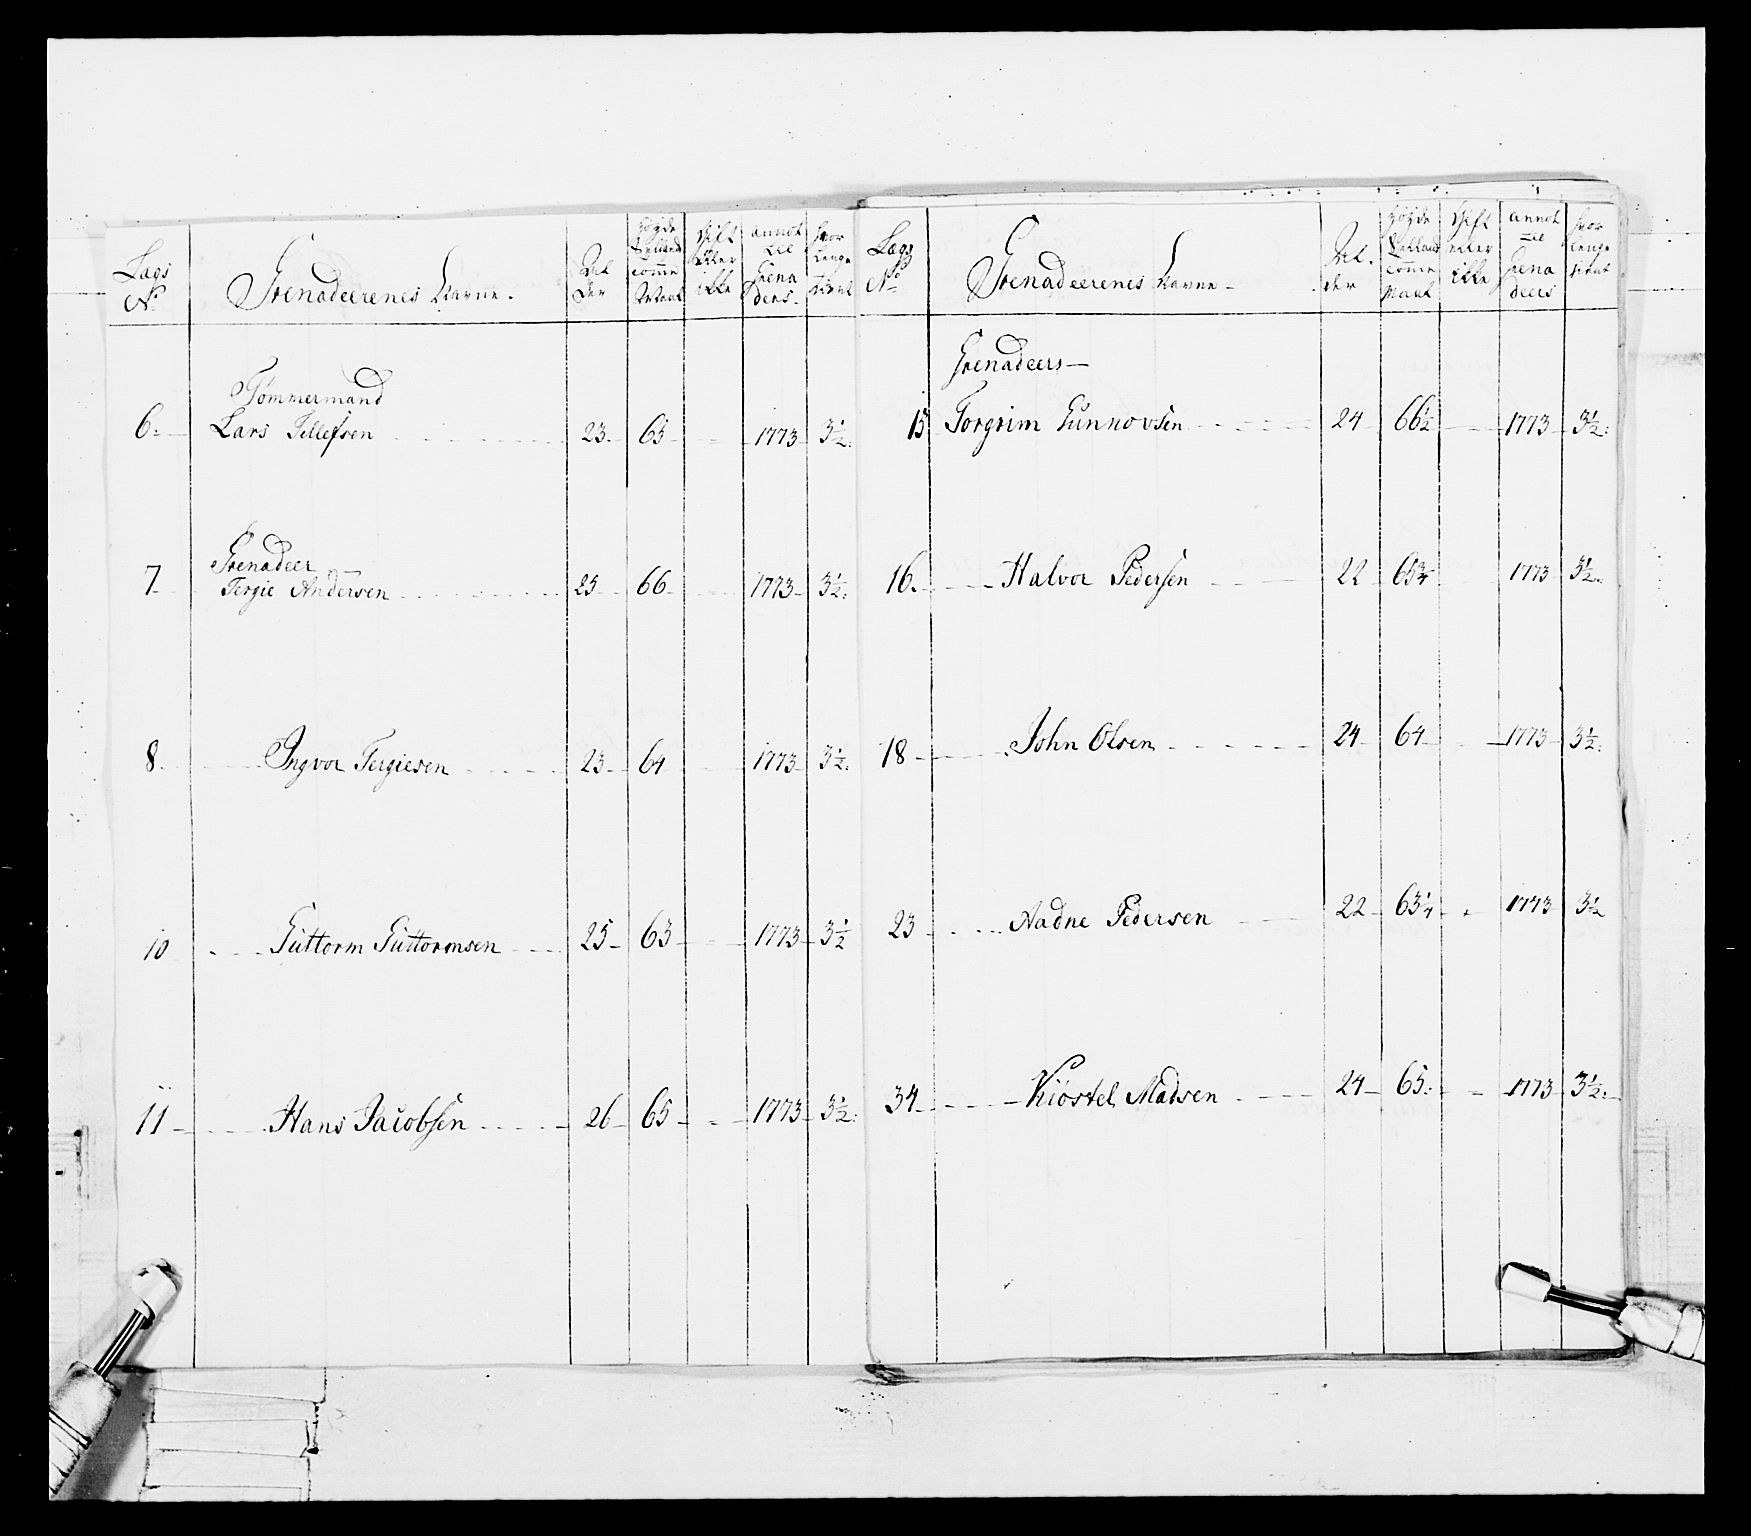 Lags No. Grenadeerenes Navne. Al der Høyde Gift eller ikke annot til Grena deers. hvor lenge tient
Tømmermand
6. Lars Tellefsen 23. 65 1773 3½.
Grenadeer
7 Tergie Andersen 25 66 1773 3½.
8. Ingvor Tergiesen 23 64 1773 3½.
10 Guttorm Guttormsen 25 63 1773 3½
11 Hans Jacobsen 26 65 1773 3½.
Lags No. Grenadeerenes Navne Al. der Høyde Gift eller ikke annot til Grena deers hvor lenge tient
Grenadeers
15 Torgrim Gunnovsen 24 66½ 1773 3½.
16. Halvor Pedersen 22 65¾ 1773 3½.
18 John Olsen 24 64 1773 3½.
23 Aadne Pedersen 22 63¼ 1773 3½
34 Kiøstel Madsen 24 65. 1773 3½.